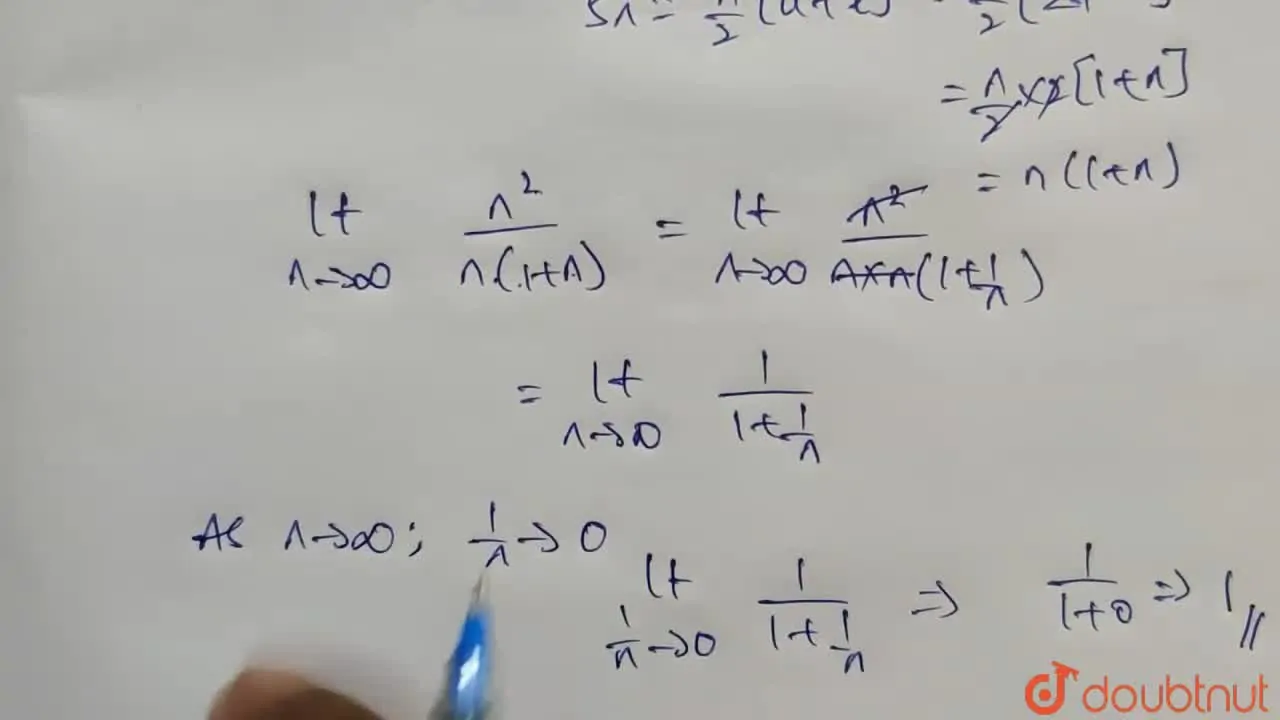 = n/2 × 2 [1+n]
= n(1+n)
lt n→∞ n²/n(1+n) = lt n→∞ n²/n×n(1+1/n)
= lt n→∞ 1/1+1/n
As n→∞; 1/n→0
lt 1/n→0 1/1+1/n ⇒ 1/1+0 ⇒ 1//
doubtnut